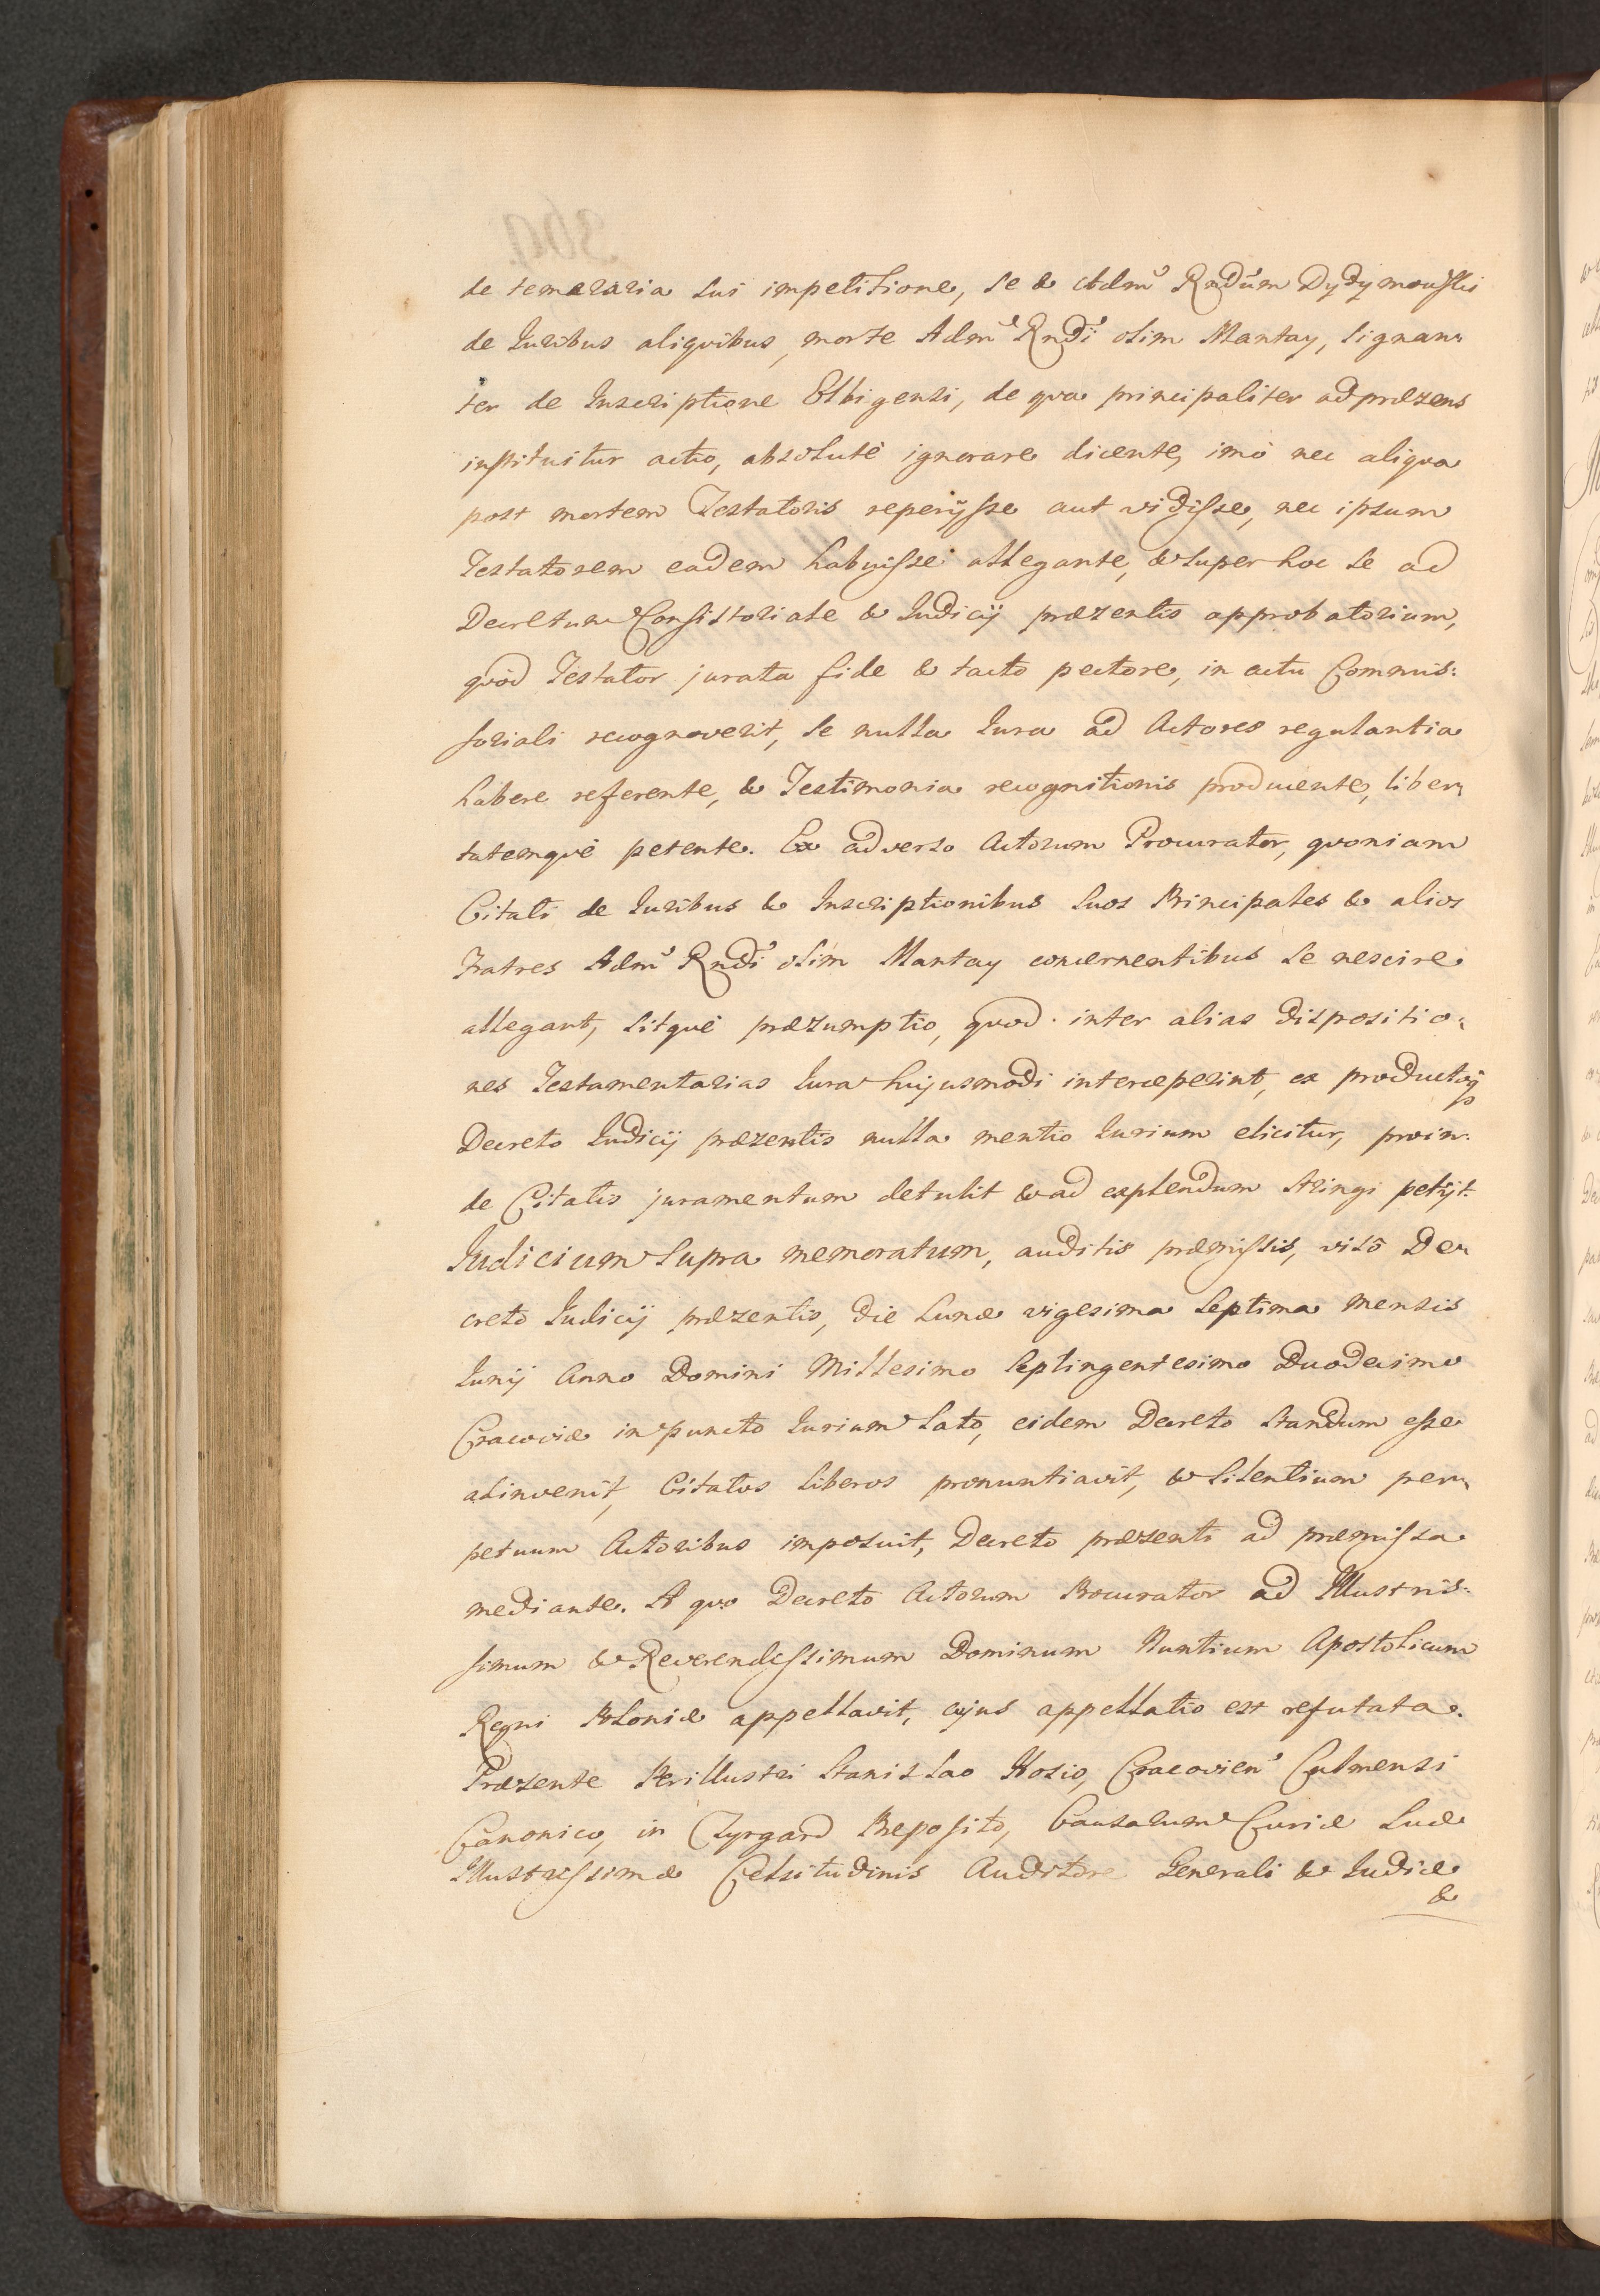 de temeraria sui impetitione, se & Adm̃ Rndũm Dydymouski
de Iuribus aliquibus, morte Adm̃ Rndĩ olim Mantay, signan-
ter de Inscriptione Elbigensi, de qva principaliter ad præsens
instituitur actio, absolutè ignorare dicente, imò nec aliqva
post mortem Testatoris reperijsse aut vidisse, nec ipsum
Testatorem eadem habuisse allegante, & super hoc se ad
Decretum Consistoriale & Iudicij præsentis approbatorium,
qvòd Testator jurata fide & tacto pectore, in actu Commis:
soriali recognoverit, se nulla Iura ad Actores regulantia
habere referente, & Testimonia recognitionis producente, liber-
tatemqvè petente. Ex adverso Actorum Procurator, qvoniam
Citati de Iuribus & Inscriptionibus suos Principales & alios
Fratres Adm̃ Rndĩ olim Mantay concernentibus se nescire
allegant, sitqvè præsumptio, qvod inter alias dispositio-
nes Testamentarias Iura hujusmodi interceperint, ex productoq
Decreto Iudicij præsentis nulla mentio Iurium elicitur, proin-
de Citatis juramentum detulit & ad explendum stringi petijt.
Iudicium supra memoratum, auditis præmissis, visô De-
creto Iudicij præsentis, die Lunæ vigesima septima mensis
Iunij Anno Domini Millesimo Septingentesimo Duodecimo
Cracoviæ in puncto Iurium lato, eidem Decreto standum esse
adinvenit, Citatos liberos pronuntiavit, & silentium per-
petuum Actoribus imposuit, Decreto præsenti ad præmissa
mediante. A qvo Decreto Actorum Procurator ad Illustris:
simum & Reverendissimum Dominum Nuntium Apostolicum
Regni Poloniæ appellavit, cujus appellatio est refutata.
Præsente Perillustri Stanislao Hosio, Cracovien̓ Culmensi
Canonico, in Czyrgard Præposito, Causarum Curiæ Suæ
Illustrissimæ Celsitudinis Auditore Generali & Iudice
&